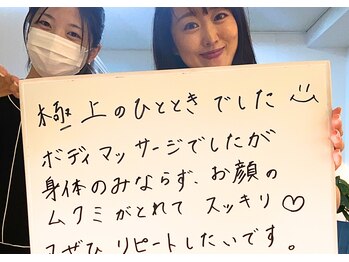 極上のひとときでした
ボディマッサージでしたが
身体のみならず、お顔の
ムクミがとれて スッキリ♡
ぜひ リピートしたいです。